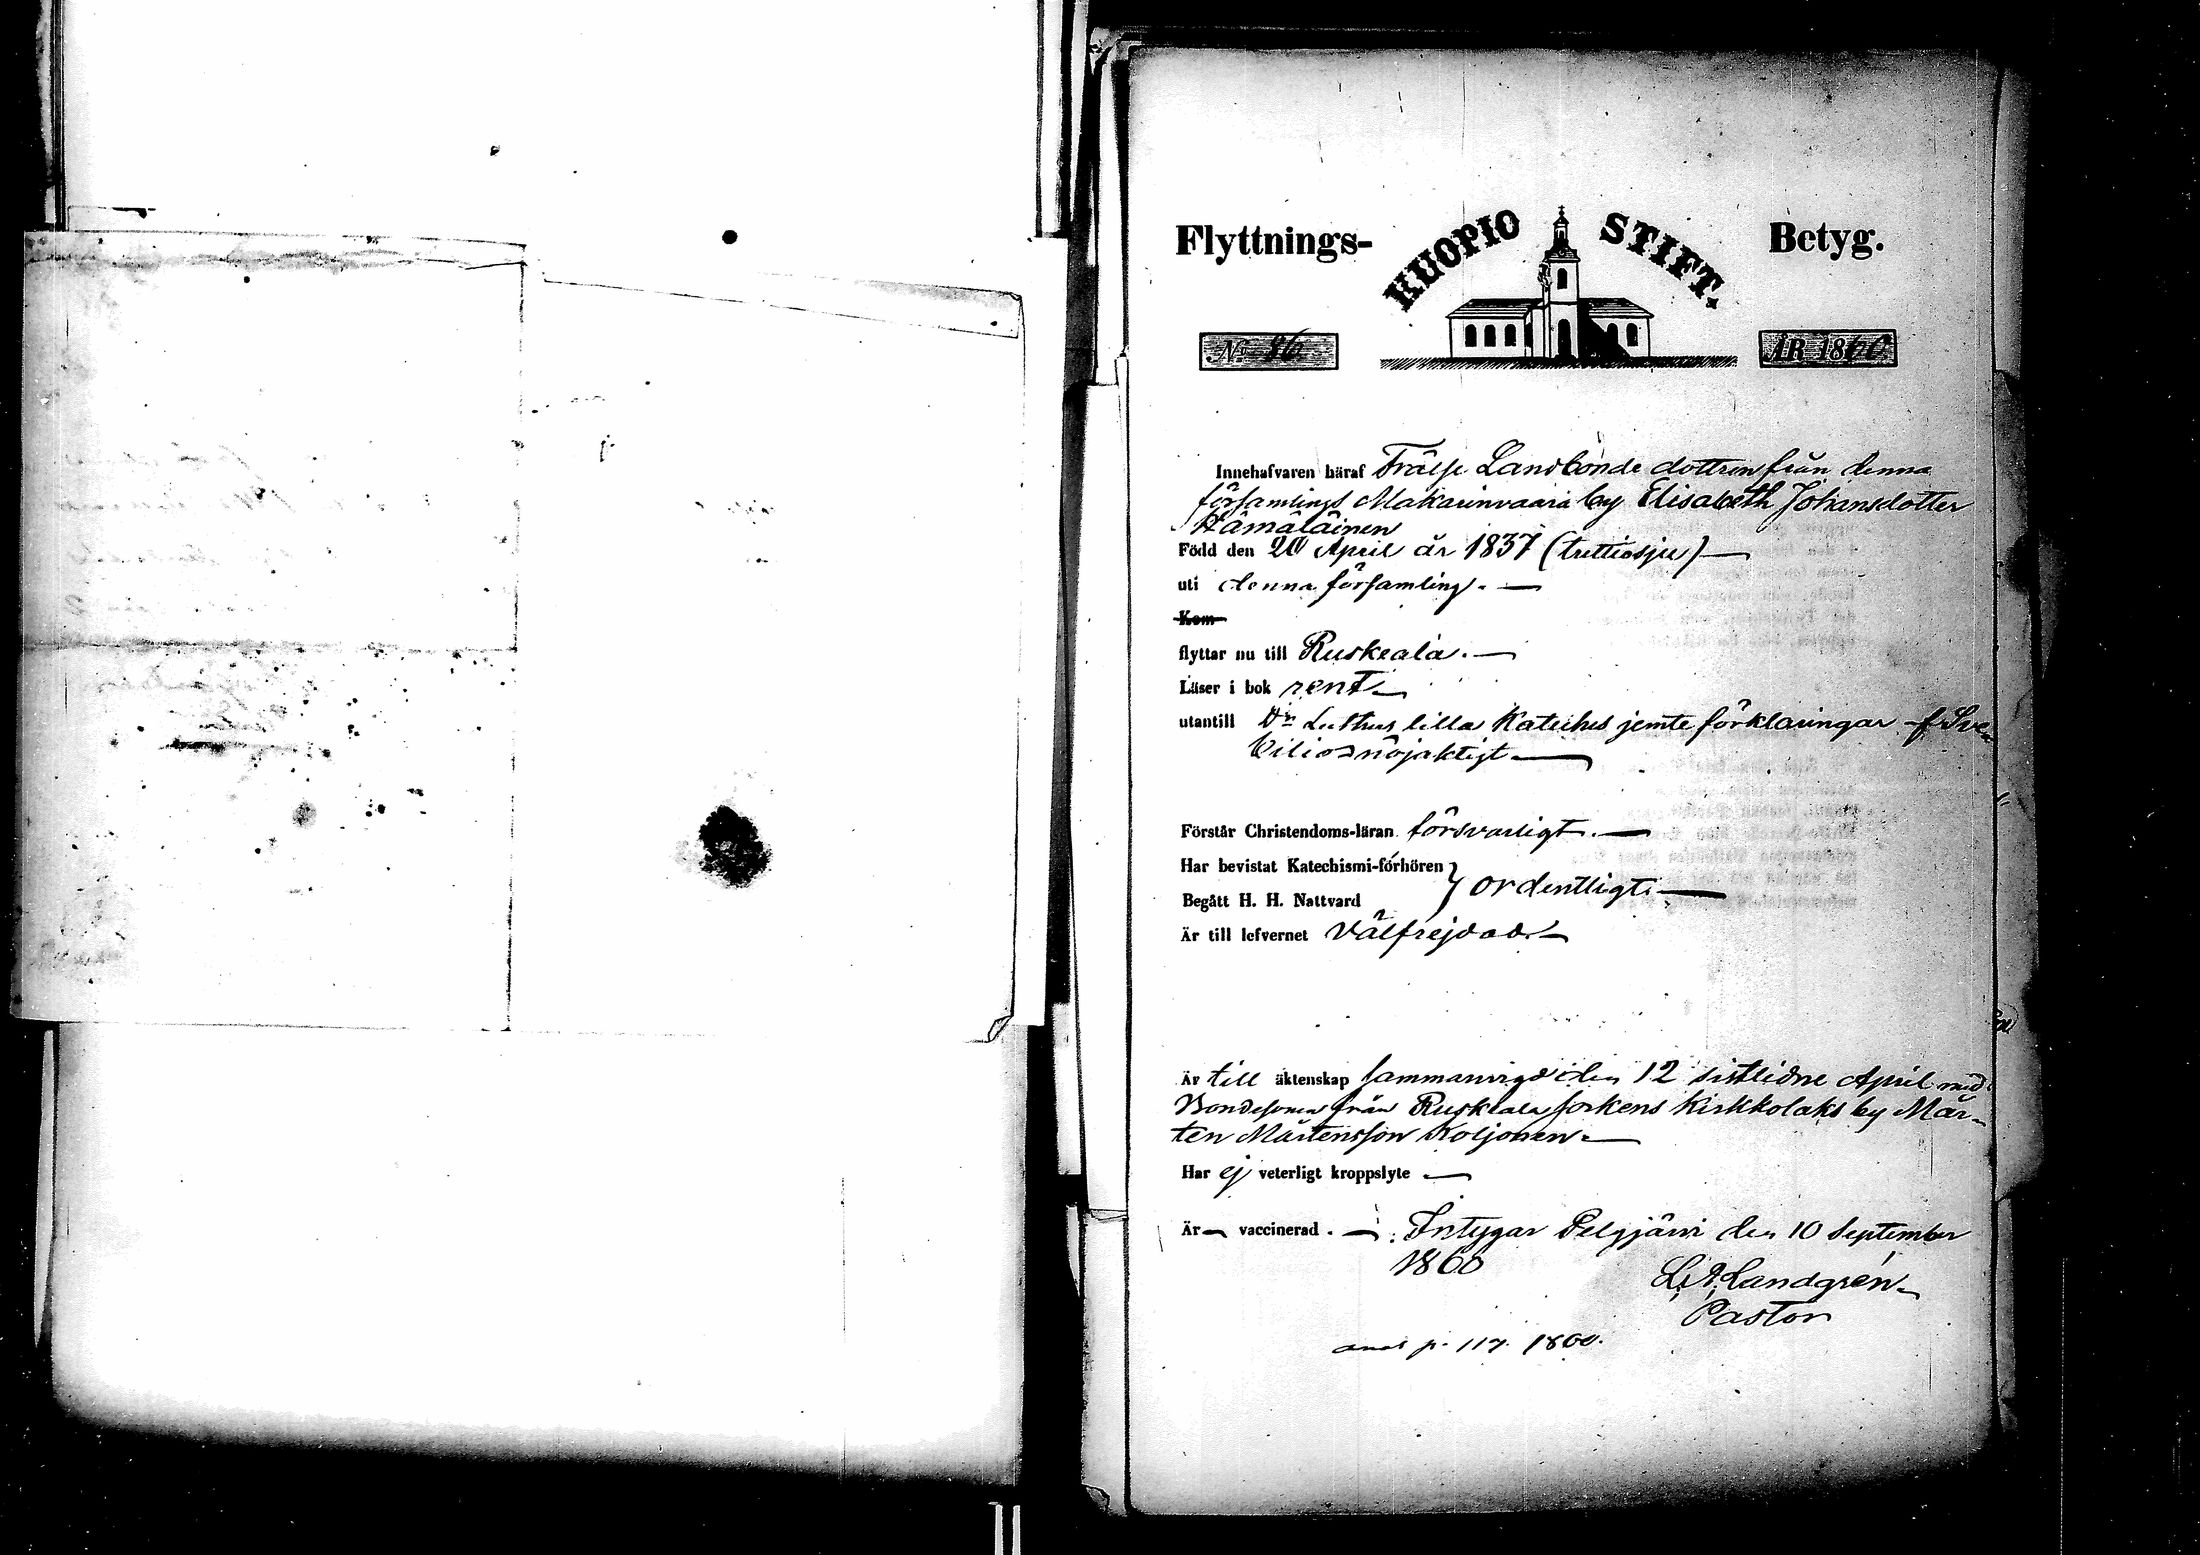 Flyttnings- KUOPIO STIFT. Betyg.
No 86 ÅR 1860
Innehafvaren häraf Frälse Landbonde dottren från denna
församlings Makarinvaara by Elisabeth Johansdotter
Hämäläinen
Född den 20 April år 1837 (trettiosju)
uti denna församling.
Kom
flyttar nu till Ruskeala.
Läser i bok rent
utantill Dr Luthers lilla Kateches jemte förklaringar af Sve-
bilios nöjaktigt
Förstår Christendoms-läran försvarligt.
Har bevistat Katechismi-förhören } ordentligt
Begått H. H. Nattvard
Är till lefvernet välfrejdad.
Är till äktenskap sammanvigd den 12 sistlidne April med
Bondesonen från Ruskeala sockens Kirkkolaks by Mår-
ten Mårtensson Koljonen.
Har ej veterligt kroppslyte
Är vaccinerad. Intygar Pelgjärvi den 10 September
1860
L. A. Landgrén
Pastor
anot p. 117. 1860.